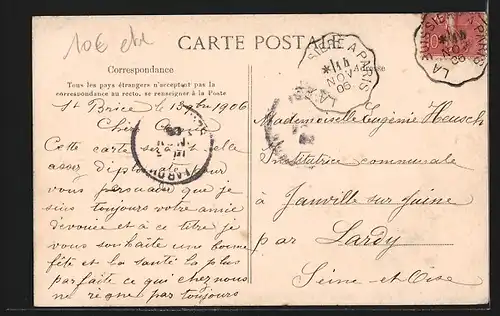 10€
CARTE POSTALE
Correspondance
Adresse
Tous les pays étrangers n'acceptant pas la
correspondance au recto, se renseigner à la Poste
St Brice le 13 9bre 1906
Cette carte sera-t-elle
assez pour
vous persuader que je
suis toujours votre amie
dévouée et à ce titre je
vous souhaite une bonne
fête et la santé la plus
parfaite ce qui chez nous
ne règne pas toujours
Mademoiselle Eugénie Heusch
Institutrice communale
à Janville sur Juine
par Lardy
Seine-et-Oise
A PARIS
NOV
06
A PARIS
NOV
LARDY